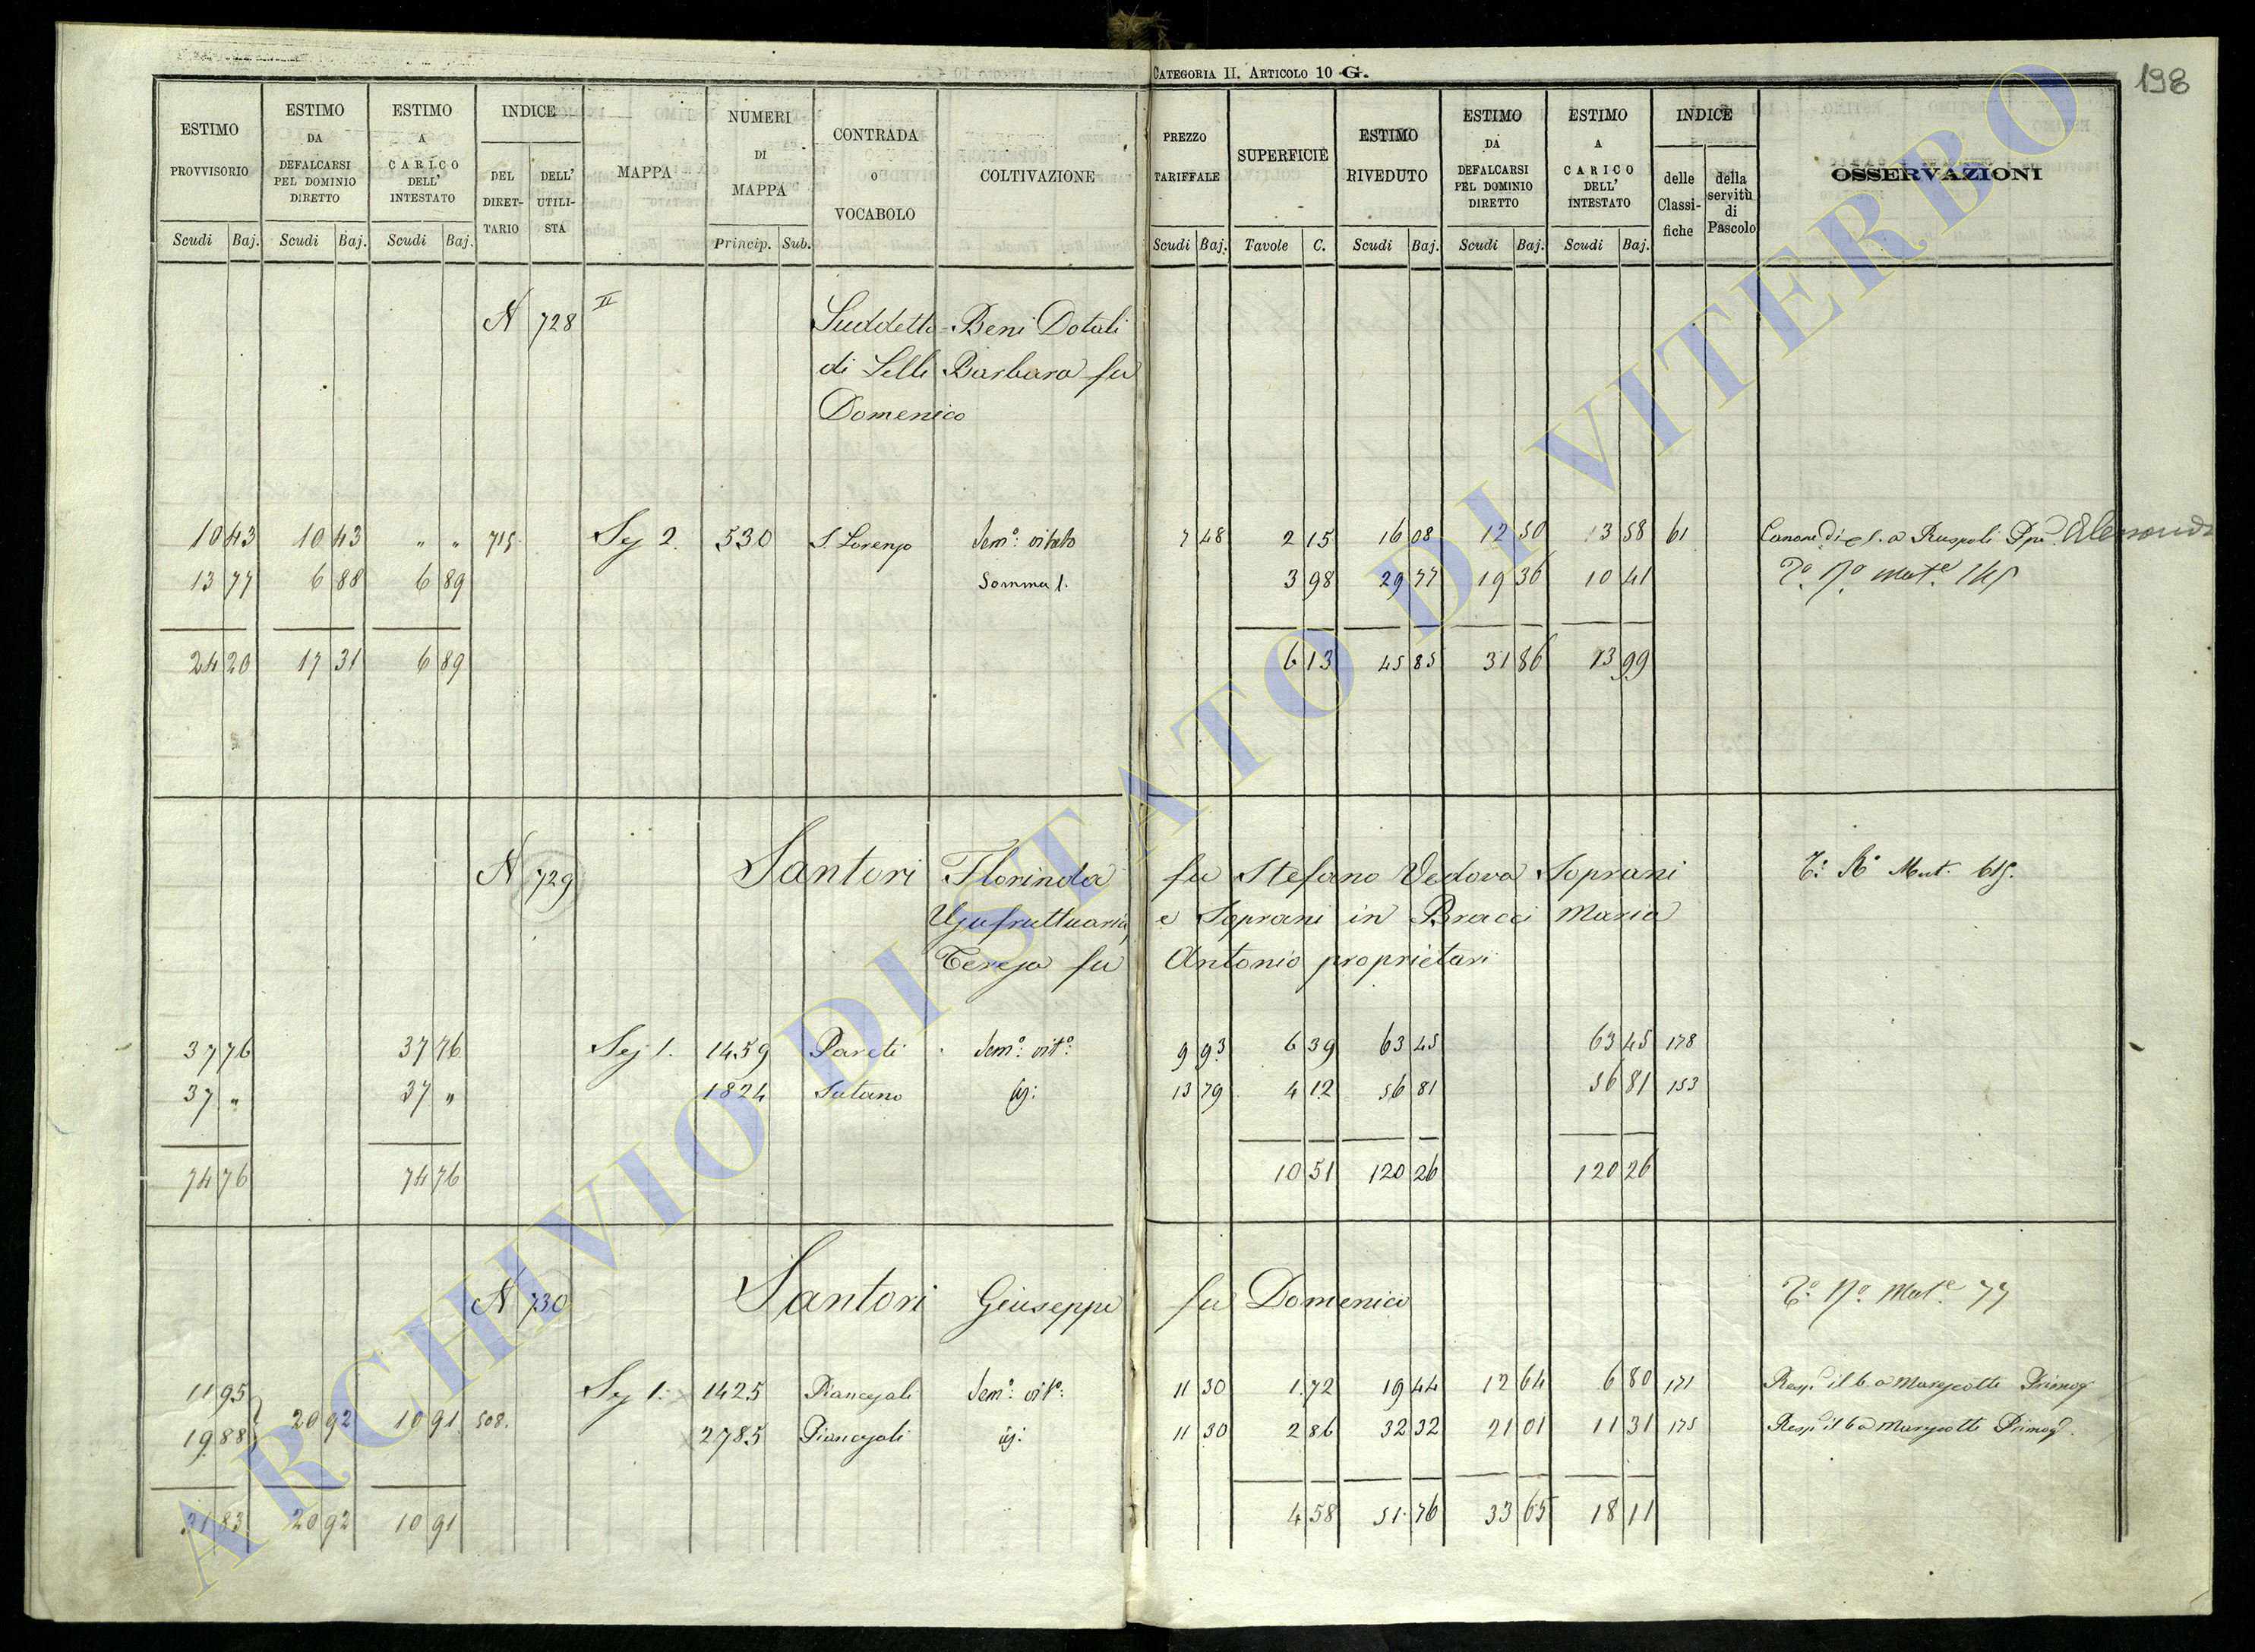 CATEGORIA II. ARTICOLO 10 G.
198
ESTIMO PROVVISORIO Scudi Baj.
ESTIMO DA DEFALCARSI PEL DOMINIO DIRETTO Scudi Baj.
ESTIMO A CARICO DELL' INTESTATO Scudi Baj.
INDICE DEL DIRETTARIO DELL' UTILISTA
MAPPA
NUMERI DI MAPPA Princip. Sub.
CONTRADA O VOCABOLO
COLTIVAZIONE
PREZZO TARIFFALE Scudi Baj.
SUPERFICIE Tavole C.
ESTIMO RIVEDUTO Scudi Baj.
ESTIMO DA DEFALCARSI PEL DOMINIO DIRETTO Scudi Baj.
ESTIMO A CARICO DELL' INTESTATO Scudi Baj.
INDICE delle Classifiche della servitù di Pascolo
OSSERVAZIONI
N 728 II Suddetto - Beni Dotali
di Selli Barbara fu
Domenico
10 43 10 43 " " 715 Sez 2. 530 S. Lorenzo Sem°: vitato 7 48 2 15 16 08 12 50 13 58 61 Canone di a Ruspoli
13 77 6 88 6 89 Somma 1. 3 98 29 77 19 36 10 41
24 20 17 31 6 89 6 13 45 85 31 86 13 99
N 729 Santori Florinda fu Stefano Vedova Soprani
Usufruttuaria, e Soprani in Bracci Maria
Teresa fu Antonio proprietari
37 76 37 76 Sez 1. 1459 Pareti Sem°: vit°: 9 93 6 39 63 45 63 45 178
37 " 37 " 1824 Sutano 13 79 4 12 56 81 56 81 153
74 76 74 76 10 51 120 26 120 26
N 730 Santori Giuseppe fu Domenico
11 95 Sez 1. 1425 Piancesali Sem°: vit°: 11 30 1 72 19 44 12 64 6 80 171
19 88 20 92 10 91 508. 2785 Piancesali 11 30 2 86 32 32 21 01 11 31 175
31 83 20 92 10 91 4 58 51 76 33 65 18 11
ARCHIVIO DI STATO DI VITERBO